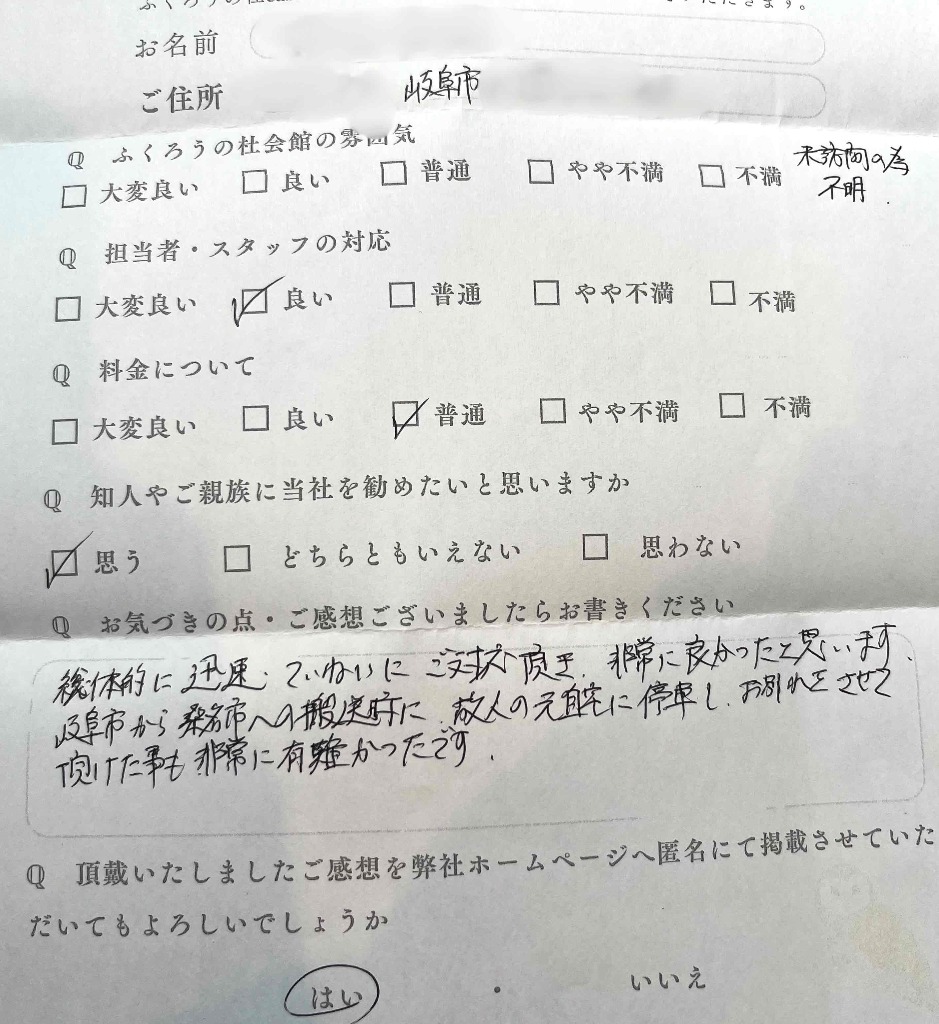 お名前
ご住所 岐阜市
Q ふくろうの杜会館の雰囲気
□ 大変良い □ 良い □ 普通 □ やや不満 □ 不満 未訪問の為
不明.
Q 担当者・スタッフの対応
□ 大変良い ☑ 良い □ 普通 □ やや不満 □ 不満
Q 料金について
□ 大変良い □ 良い ☑ 普通 □ やや不満 □ 不満
Q 知人やご親族に当社を勧めたいと思いますか
☑ 思う □ どちらともいえない □ 思わない
Q お気づきの点・ご感想ございましたらお書きください
総体的に迅速、ていねいにご対応頂き、非常に良かったと思います、
岐阜市から桑名市への搬送時に、故人の元自宅に停車し、お別れをさせて
頂けた事も非常に有難かったです、
Q 頂戴いたしましたご感想を弊社ホームページへ匿名にて掲載させていた
だいてもよろしいでしょうか
はい ・ いいえ